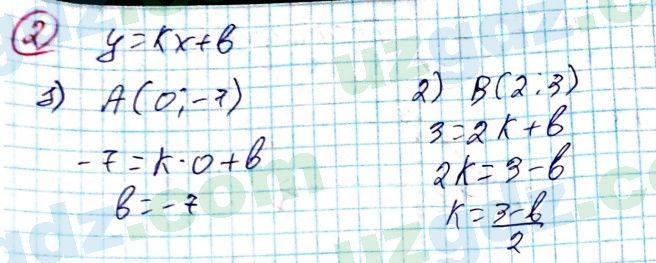 2 y=kx+b
1) A(0;-7)
-7=k·0+b
b=-7
2) B(2;3)
3=2k+b
2k=3-b
k=3-b/2